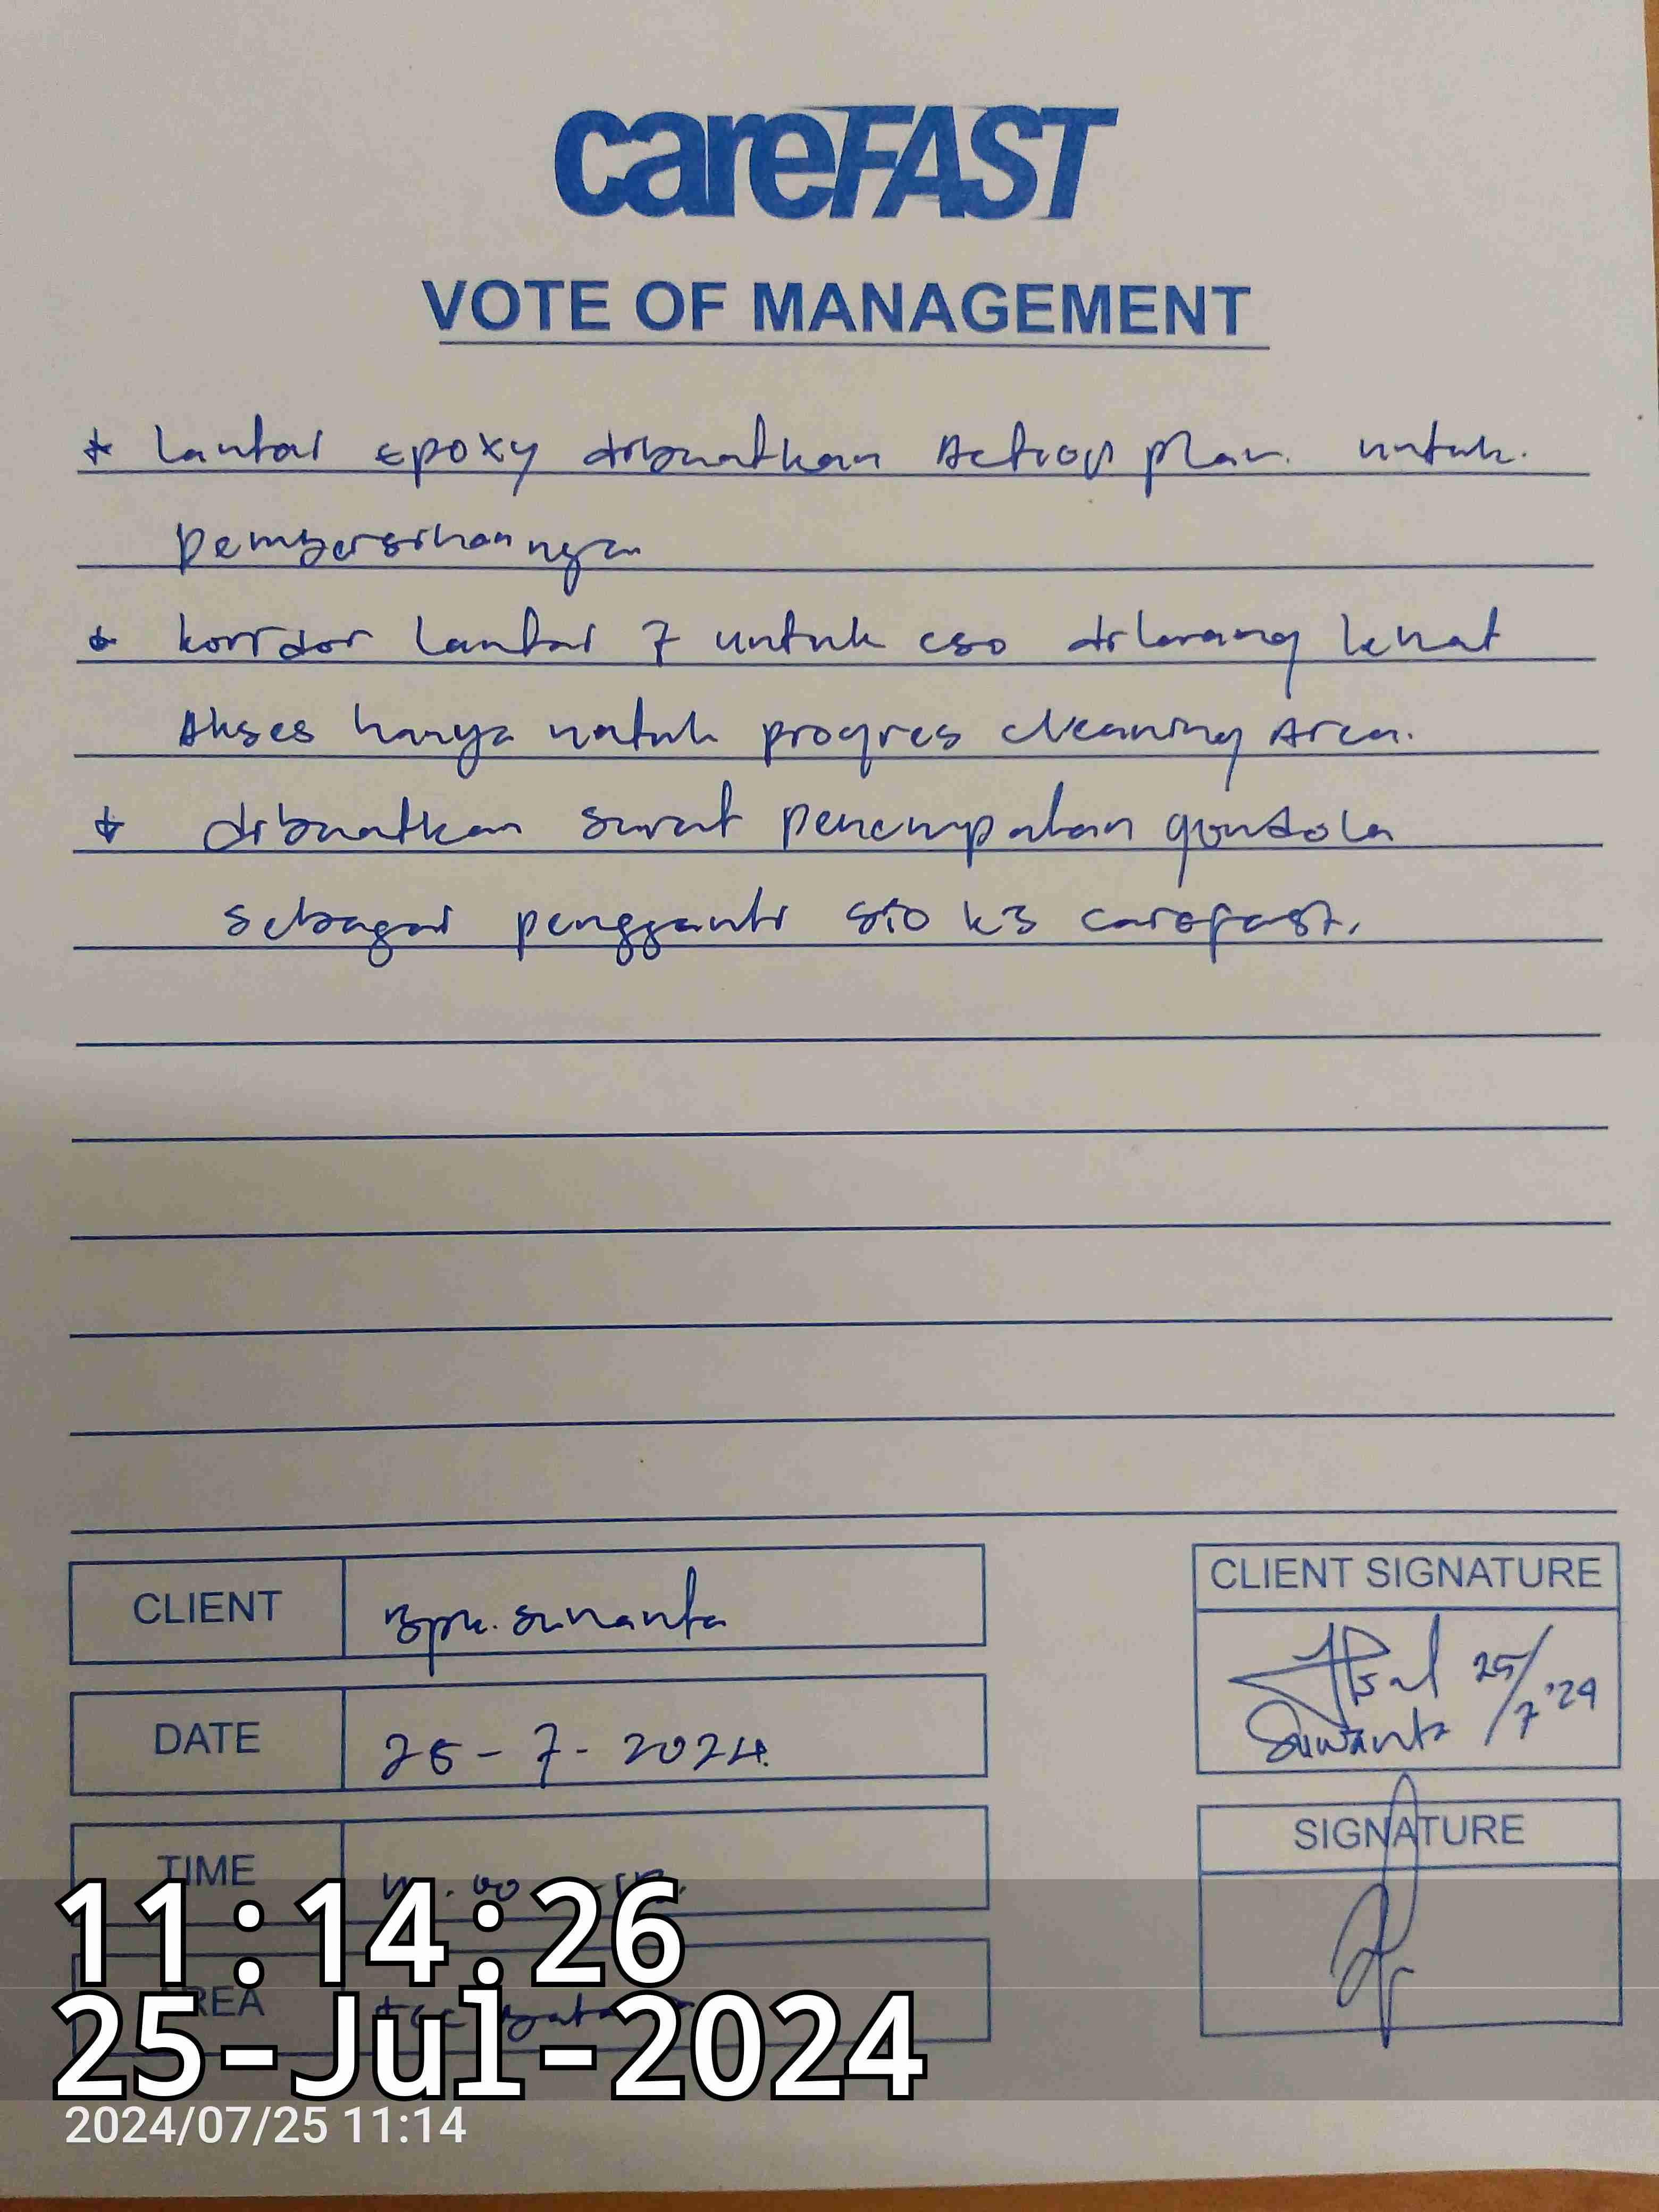 careFAST
VOTE OF MANAGEMENT
* Lantai Epoxy dibuatkan Action plan. untuk.
pembersihannya
* koridor Lantai 7 untuk cso dilarang lewat
Akses hanya untuk progres cleaning Area.
* dibuatkan surat penempatan gondola
sebagai pengganti sio k3 carefast.
CLIENT
Bpk. Suwanta
CLIENT SIGNATURE
25/7 '24
Suwanta
DATE
25-7-2024.
TIME
SIGNATURE
AREA
11:14:26
25-Jul-2024
2024/07/25 11:14